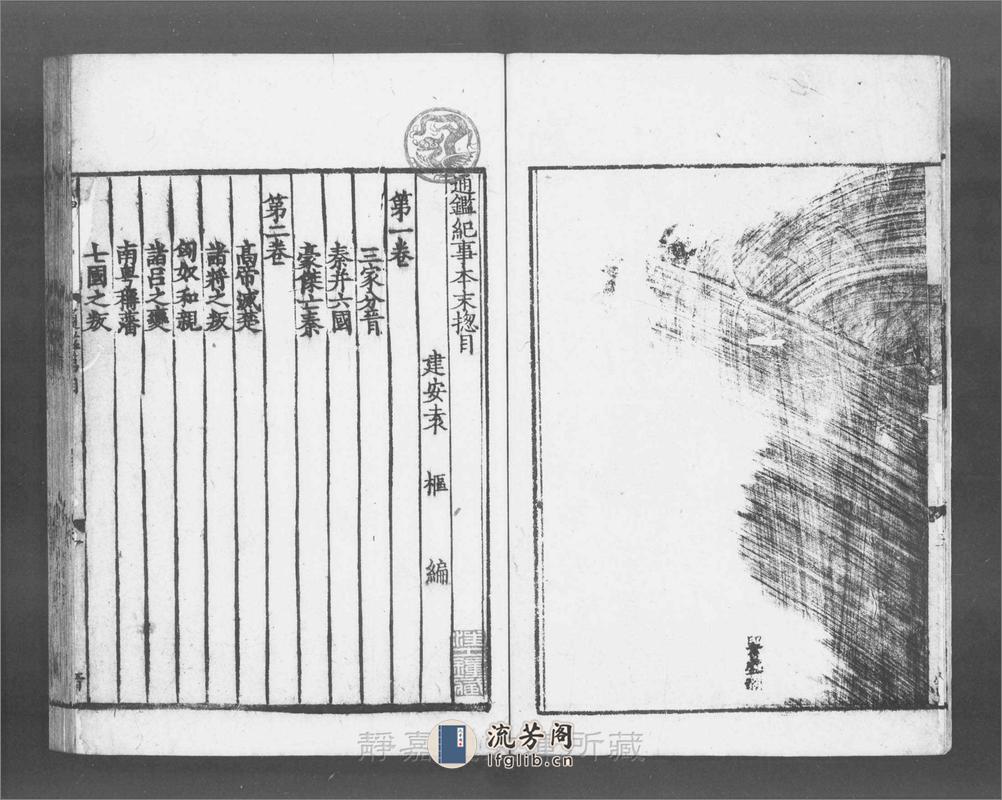 通鑑紀事本末揔目
建安袁樞編
第一卷
三家分晉
秦并六國
豪傑亡秦
第二卷
高帝滅楚
諸將之叛
匈奴和親
諸呂之變
南粤稱藩
七國之叛
靜嘉 所藏
流芳阁
lfglib.cn